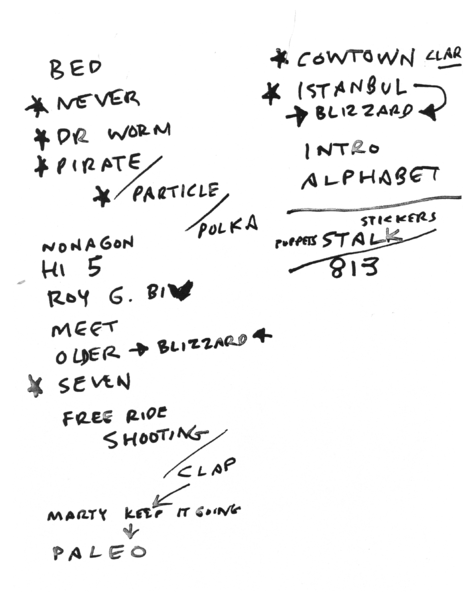 BED
★ NEVER
★ DR WORM
★ PIRATE
★ PARTICLE
POLKA
NONAGON
HI 5
ROY G. BIV
MEET
OLDER → BLIZZARD ←
★ SEVEN
FREE RIDE
SHOOTING
CLAP
MARTY KEEP IT GOING
PALEO
★ COWTOWN CLAR
★ ISTANBUL
→ BLIZZARD
INTRO
ALPHABET
STICKERS
PUPPETS STALK
813